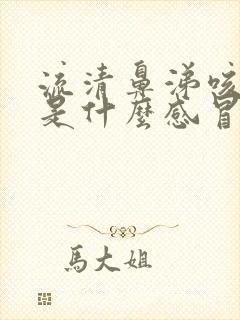 流清鼻涕咳
是什麼感冒
馬大姐